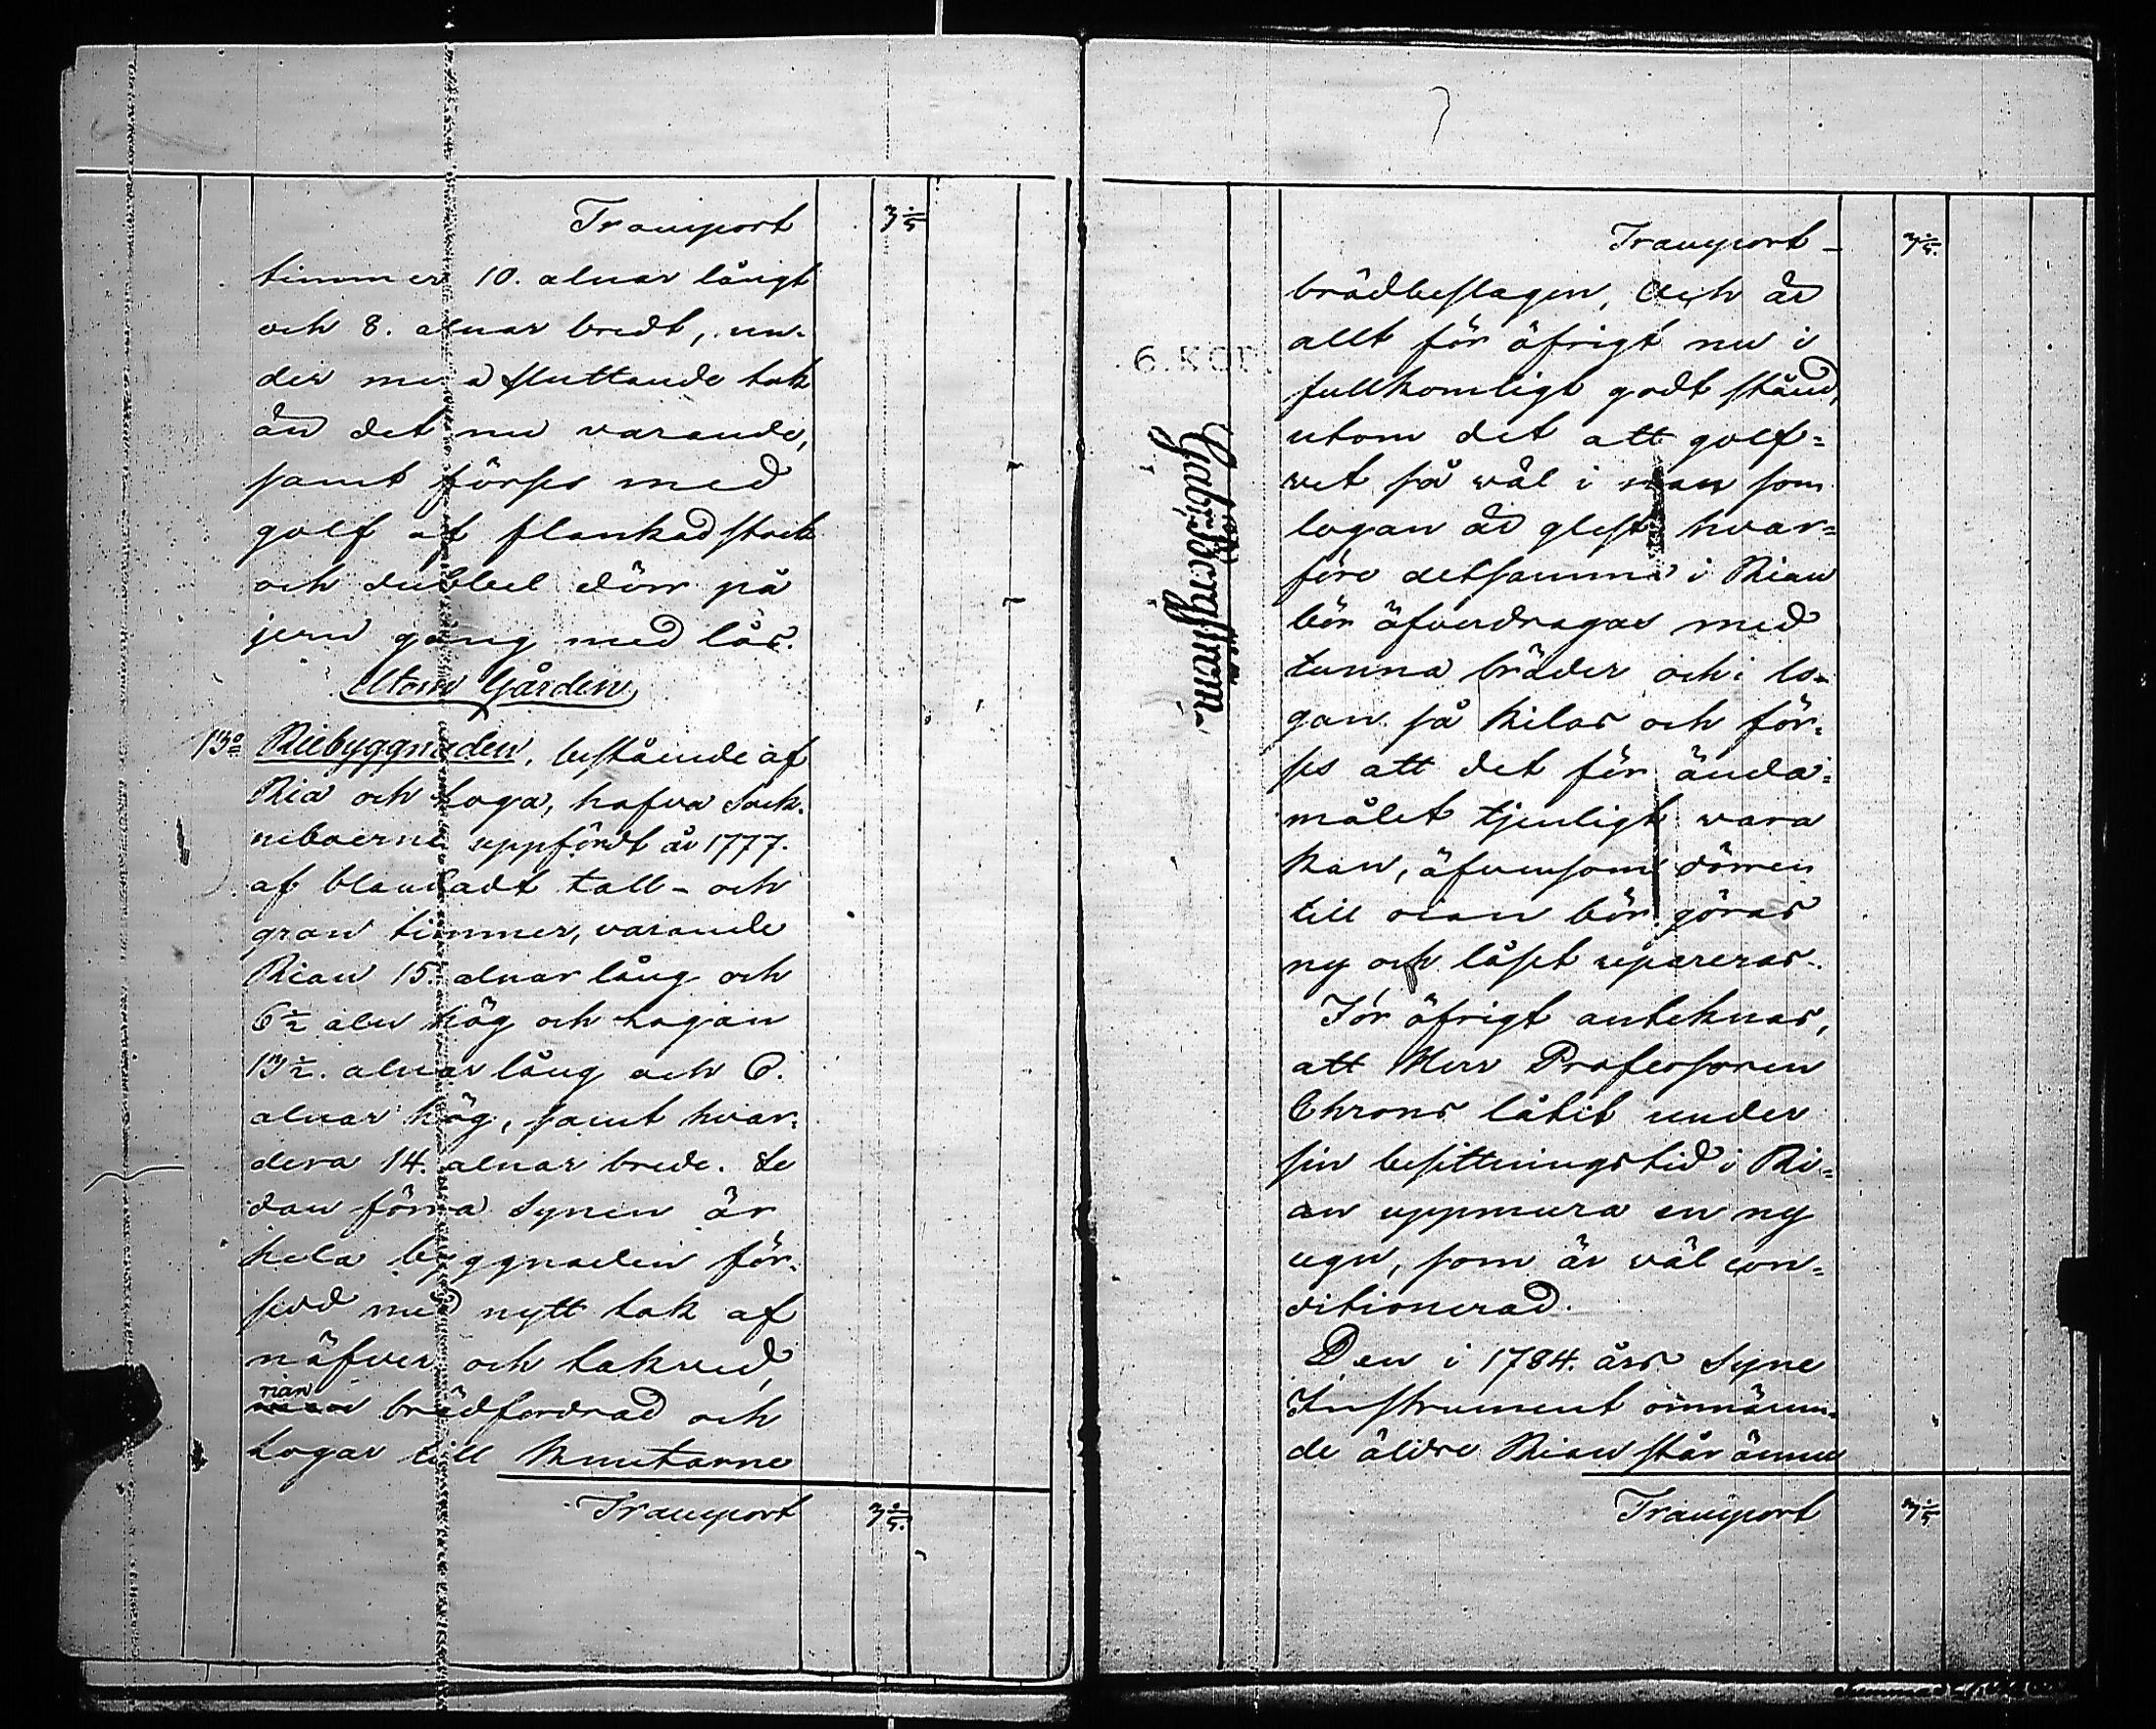 Transport 3 ÷/5
timmer 10. alnar långt
och 8. alnar bredt, un-
der mera sluttande tak
än det nu varande,
samt förses med
golf af flankad stock
och dubbel dörr på
jern gång med lås.
Utom Gården
13o Riebyggnaden, bestående af
Ria och Loga, hafva Sock-
neboerne uppfördt år 1777.
af blandadt tall- och
gran timmer, varande
Rian 15. alnar lång och
6 ½ aln hög och Logan
13 ½. alnar lång och 6.
alnar hög, samt hvar-
dera 14. alnar brede. Se
dan förra Synen är
hela byggnaden för-
sedd med nytt tak af
näfver och takved,
rian
brädfordrad och
Logan till knutarne
Transport 3 ÷/5.
Transport - 3 ÷/5.
brädbeslagen, Och är
allt för öfrigt nu i
fullkomligt godt stånd,
utom det att golf=
vet så väl i rian som
logan är glest hvar=
före detsamma i Rian
bör öfverdragas med
tunna bräder och i lo-
gan så kilas och för-
ses att det för ända-
målet tjenligt vara
kan, äfvensom dörren
till rian bör göras
ny och låset repareras.
För öfrigt anteknas,
att Herr Professoren
Chrons låtit under
sin besittningstid i Ri=
an uppmura en ny
ugn, som är väl con=
ditionerad.
Den i 1784. års Syne
Instrument omnämn-
de äldre Rian står ännu
Transport 3 ÷/5
6. KOP.